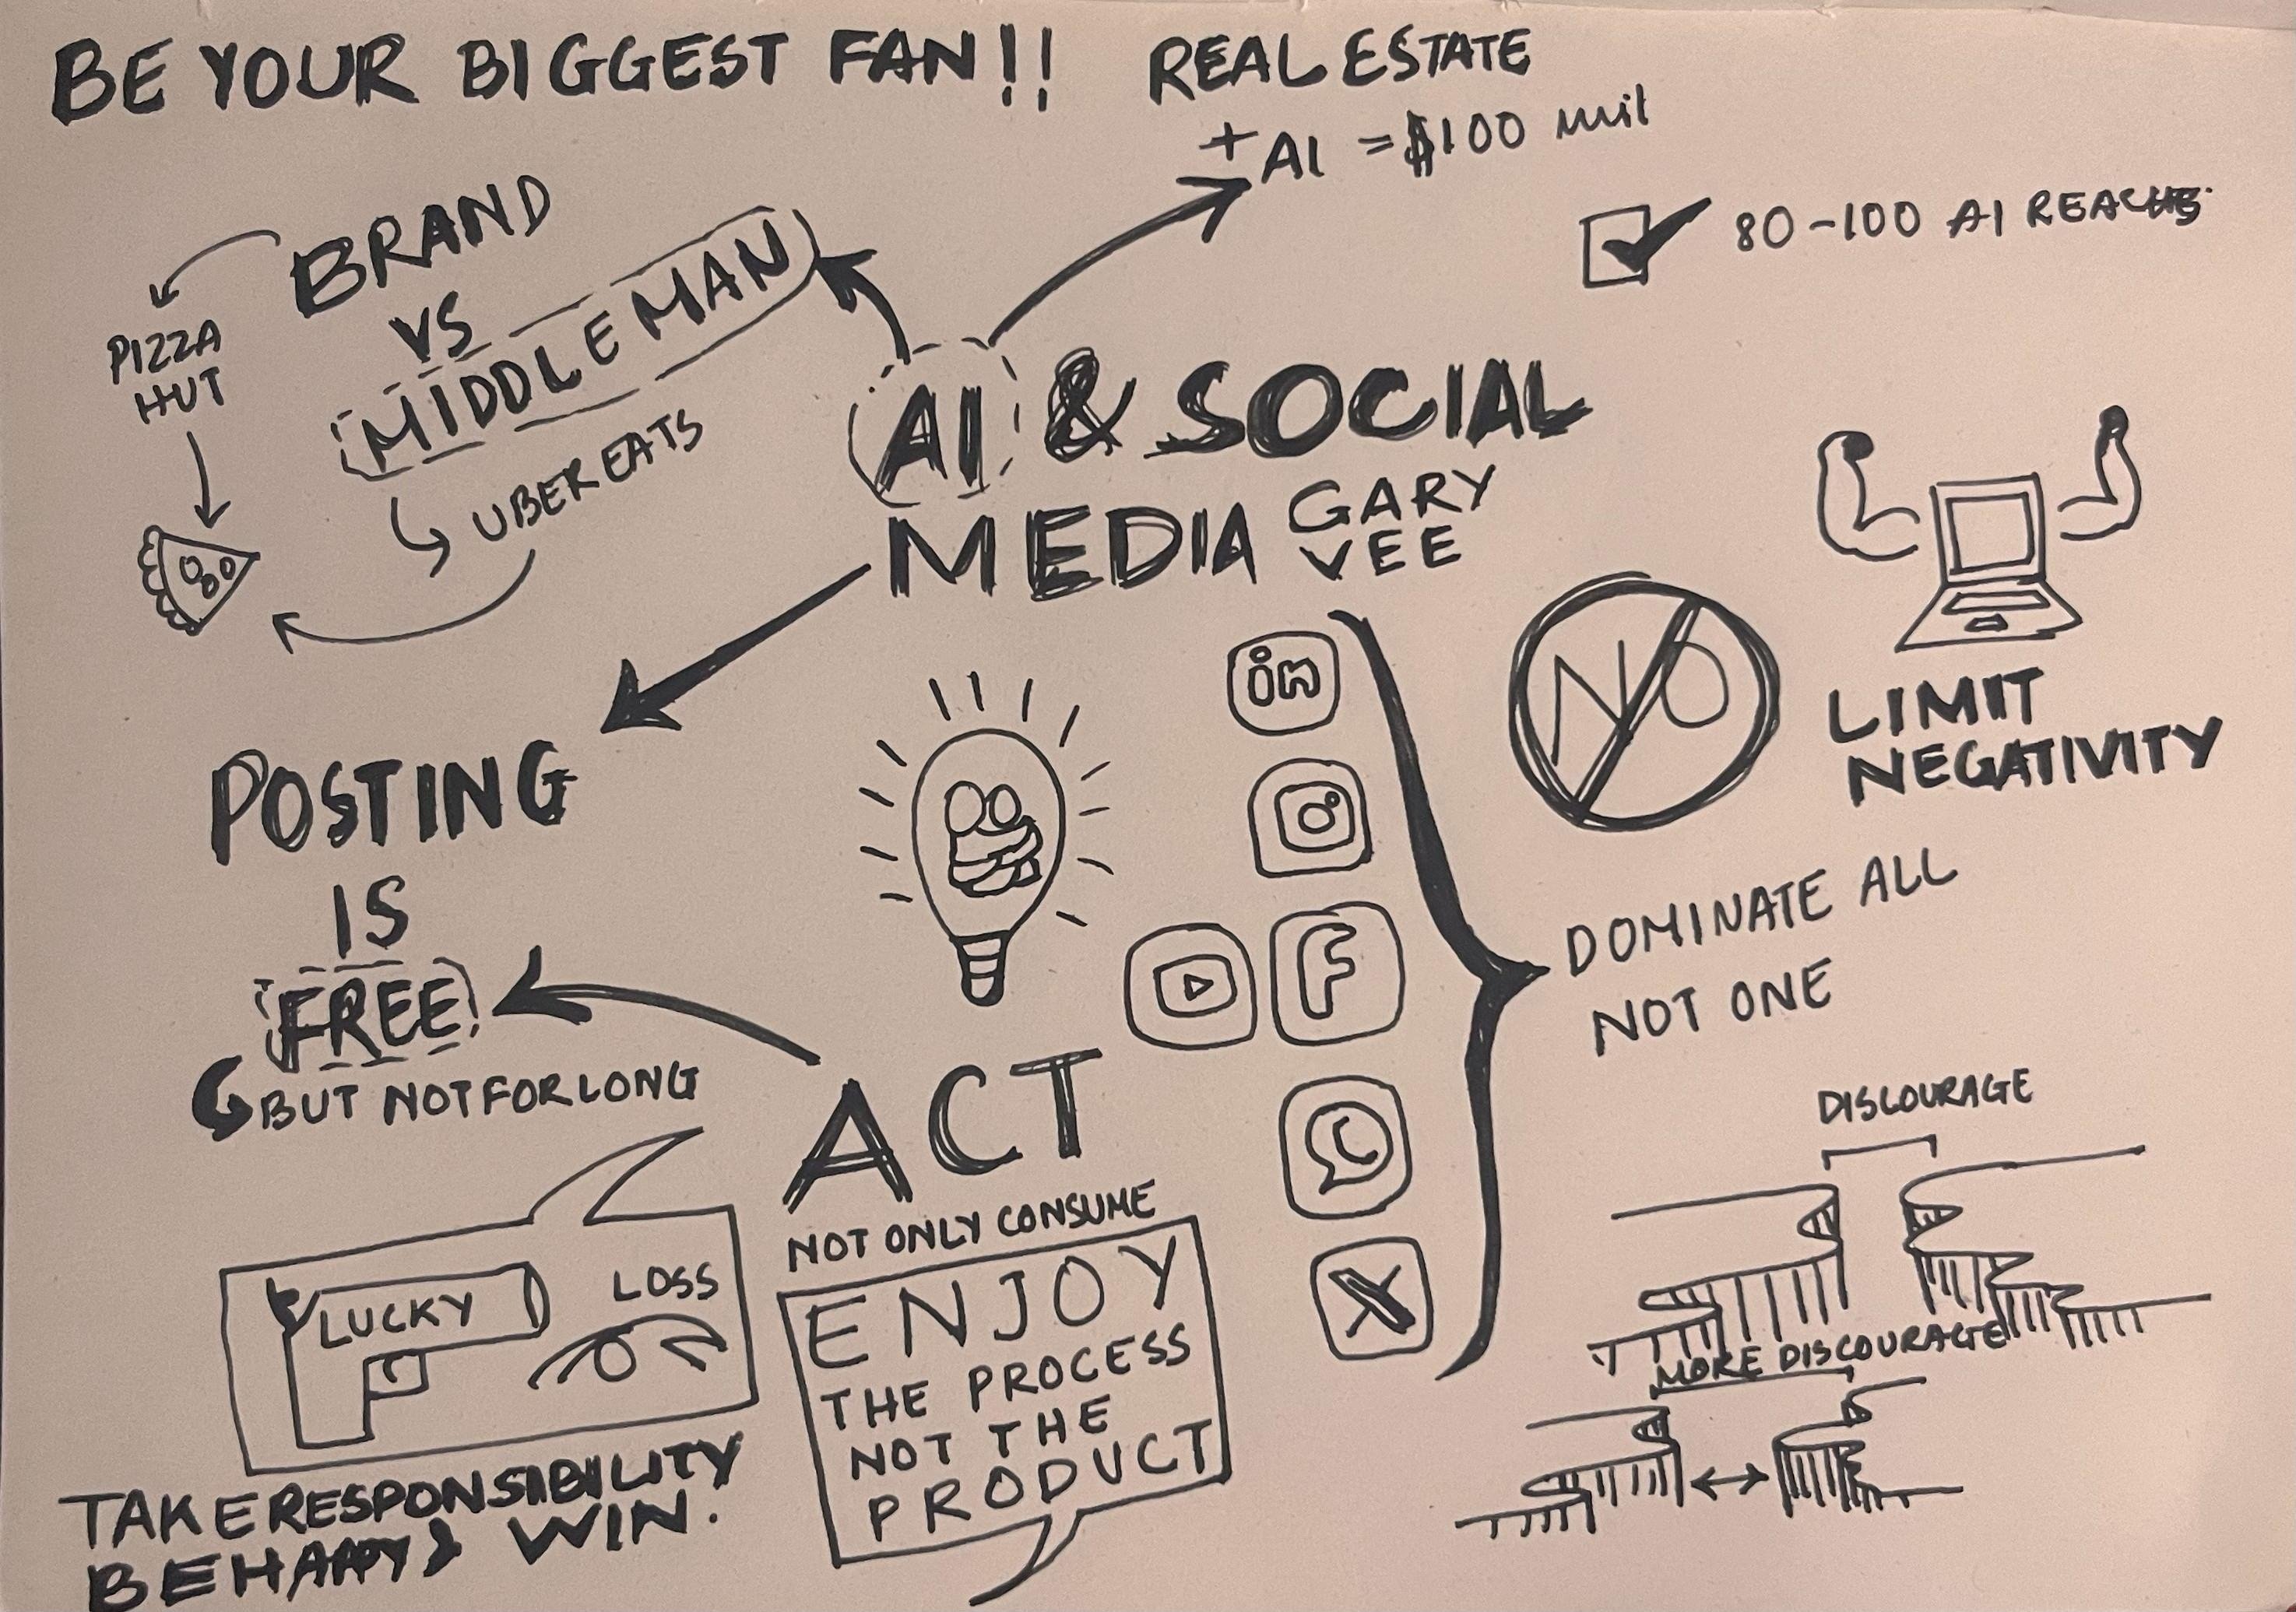 BE YOUR BIGGEST FAN!!
REAL ESTATE
+ AI = $100 mil
80-100 AI
BRAND
VS
MIDDLE MAN
PIZZA
HUT
UBER EATS
AI & SOCIAL
MEDIA GARY
VEE
in
NO
LIMIT
NEGATIVITY
POSTING
IS
FREE
BUT NOT FOR LONG
DOMINATE ALL
NOT ONE
ACT
NOT ONLY CONSUME
ENJOY
THE PROCESS
NOT THE
PRODUCT
LUCKY
LOSS
TAKE RESPONSIBILITY
BE HAPPY & WIN.
DISCOURAGE
MORE DISCOURAGE
f
X